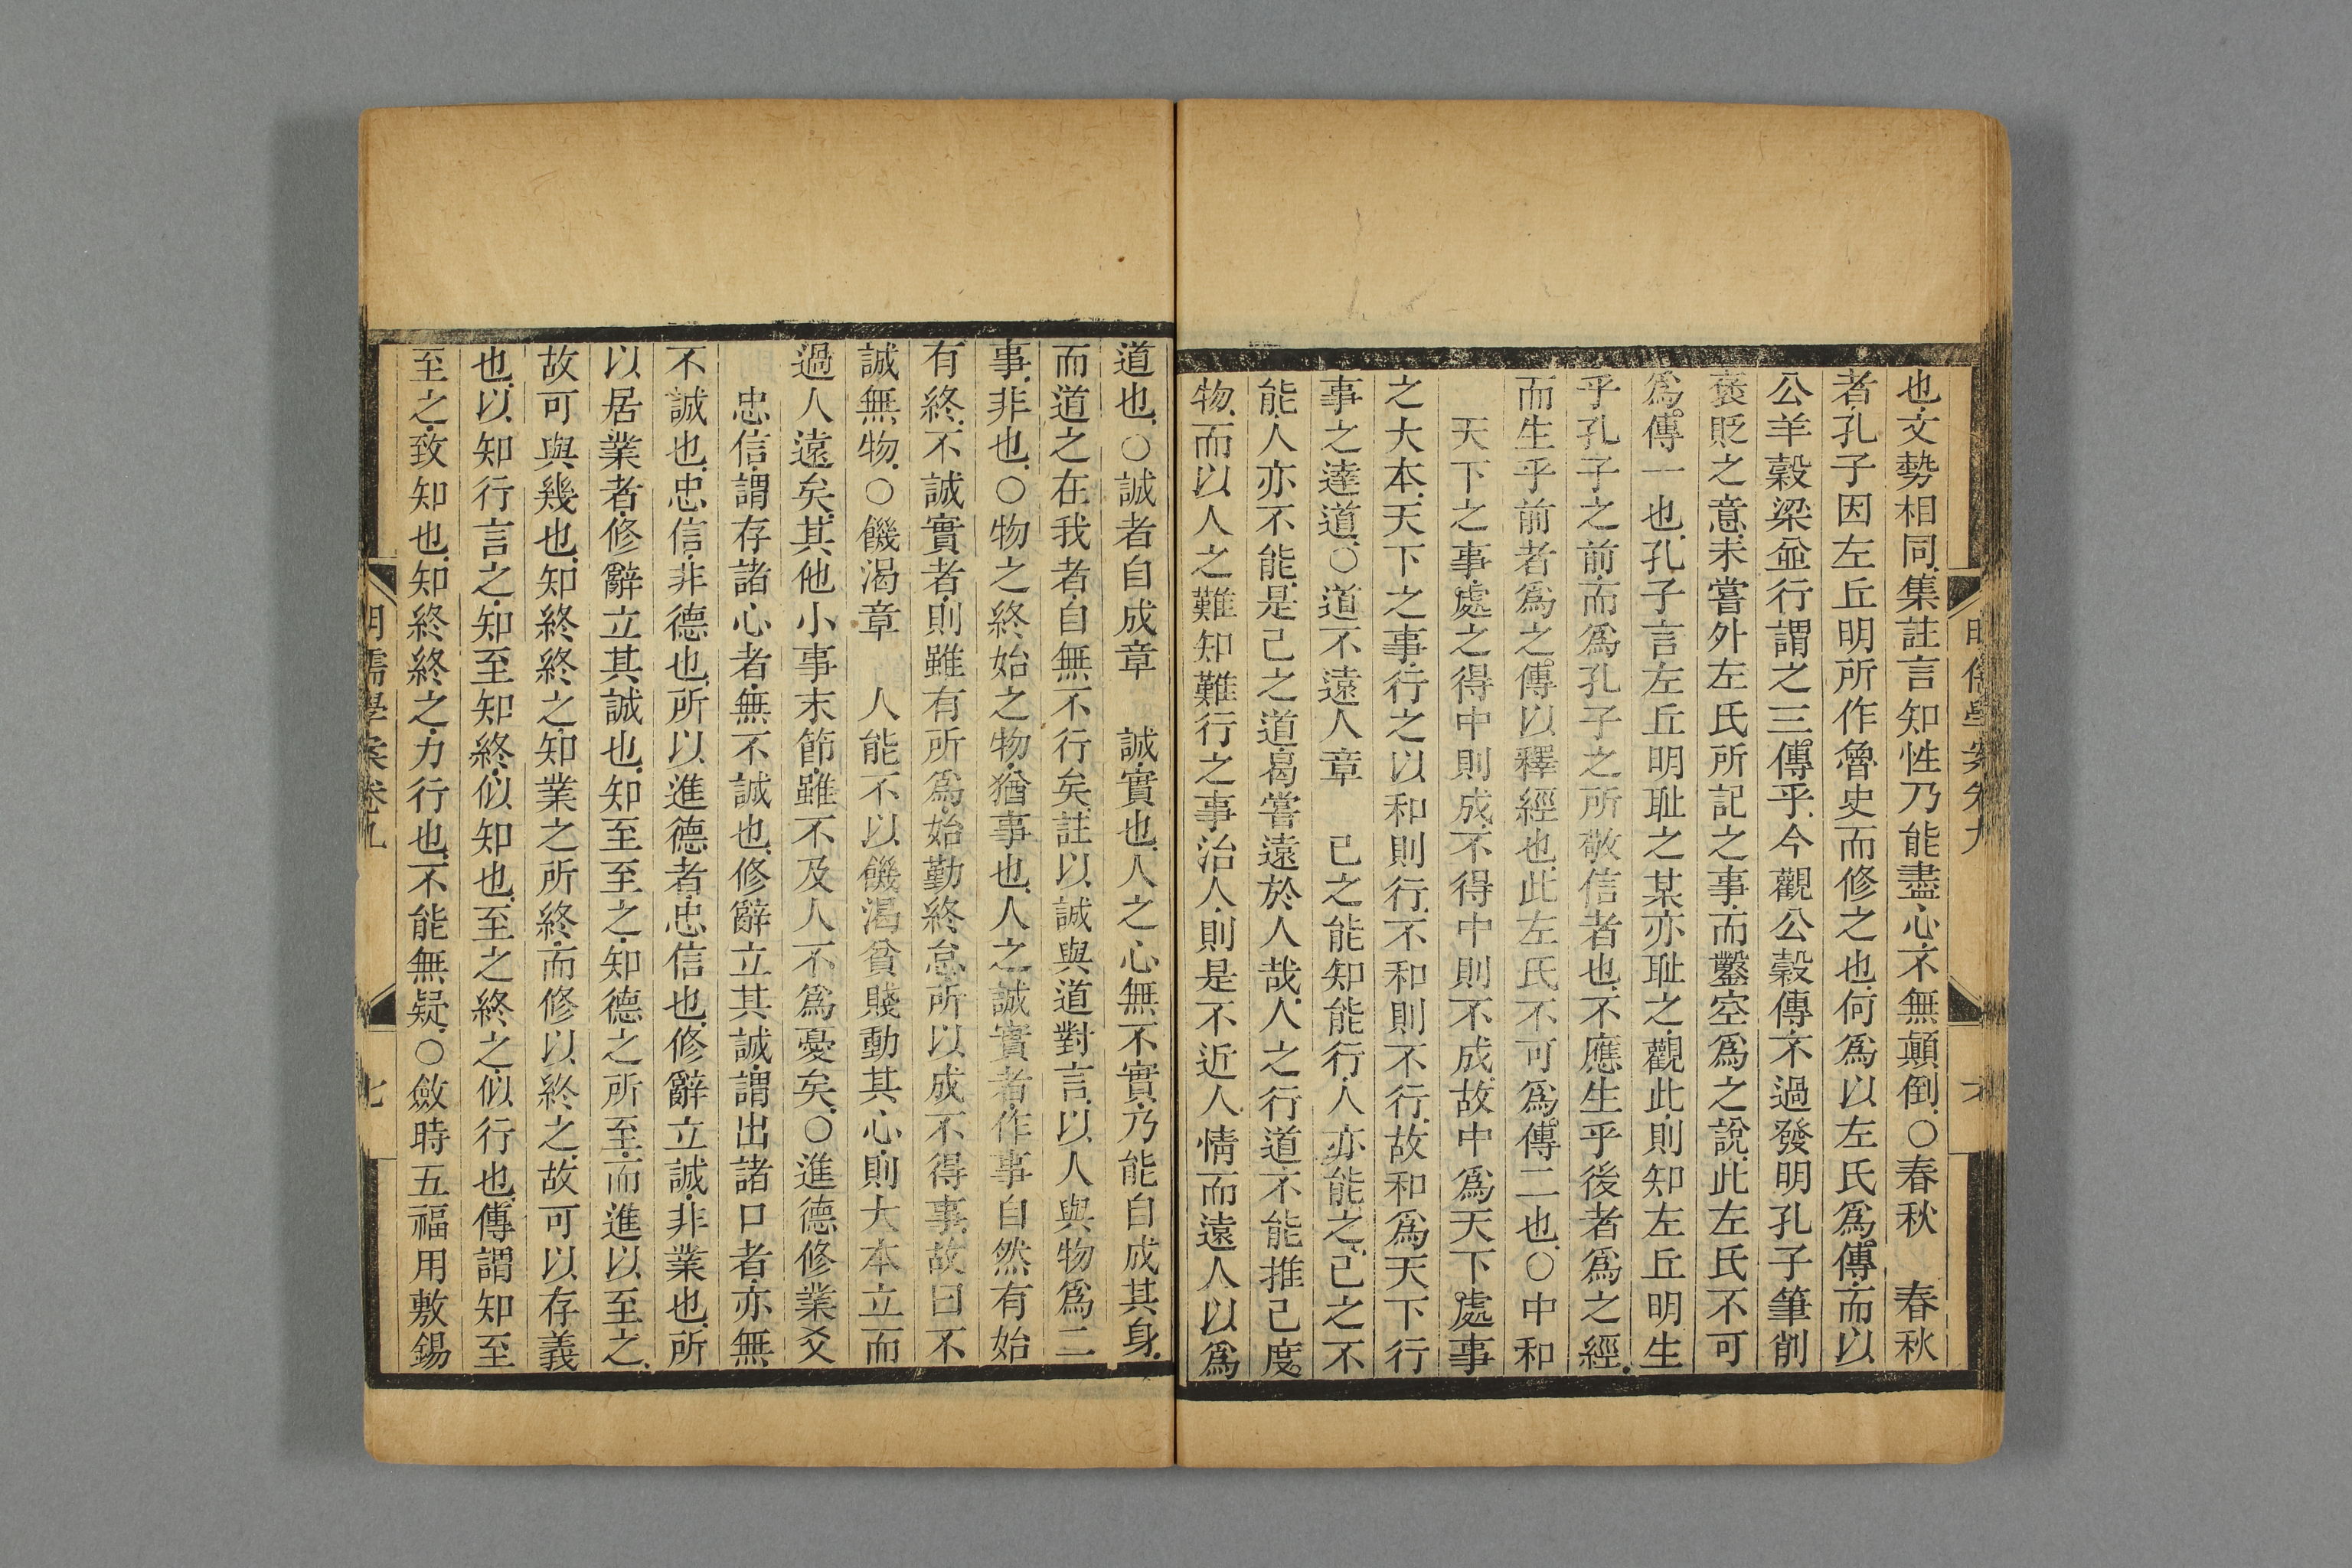 也文勢相同集註言知性乃能盡心不無顛倒○春秋　春秋
者孔子因左丘明所作魯史而修之也何爲以左氏爲傳而以
公羊穀梁並行謂之三傳乎今觀公穀傳不過發明孔子筆削
褒貶之意未嘗外左氏所記之事而鑿空爲之說此左氏不可
爲傳一也孔子言左丘明耻之某亦耻之觀此則知左丘明生
乎孔子之前而爲孔子之所敬信者也不應生乎後者爲之經
而生乎前者爲之傳以釋經也此左氏不可爲傳二也○中和
天下之事處之得中則成不得中則不成故中爲天下處事
之大本天下之事行之以和則行不和則不行故和爲天下行
事之達道○道不遠人章　己之能知能行人亦能之己之不
能人亦不能是己之道曷嘗遠於人哉人之行道不能推己度
物而以人之難知難行之事治人則是不近人情而遠人以爲
道也○誠者自成章　誠實也人之心無不實乃能自成其身
而道之在我者自無不行矣註以誠與道對言以人與物爲二
事非也○物之終始之物猶事也人之誠實者作事自然有始
有終不誠實者則雖有所爲始勤終怠所以成不得事故曰不
誠無物○饑渴章　人能不以饑渴貧賤動其心則大本立而
過人遠矣其他小事末節雖不及人不爲憂矣○進德修業爻
忠信謂存諸心者無不誠也修辭立其誠謂出諸口者亦無
不誠也忠信非德也所以進德者忠信也修辭立誠非業也所
以居業者修辭立其誠也知至至之知德之所至而進以至之
故可與幾也知終終之知業之所終而修以終之故可以存義
也以知行言之知至知終似知也至之終之似行也傳謂知至
至之致知也知終終之力行也不能無疑○斂時五福用敷錫
明儒學案卷九
七